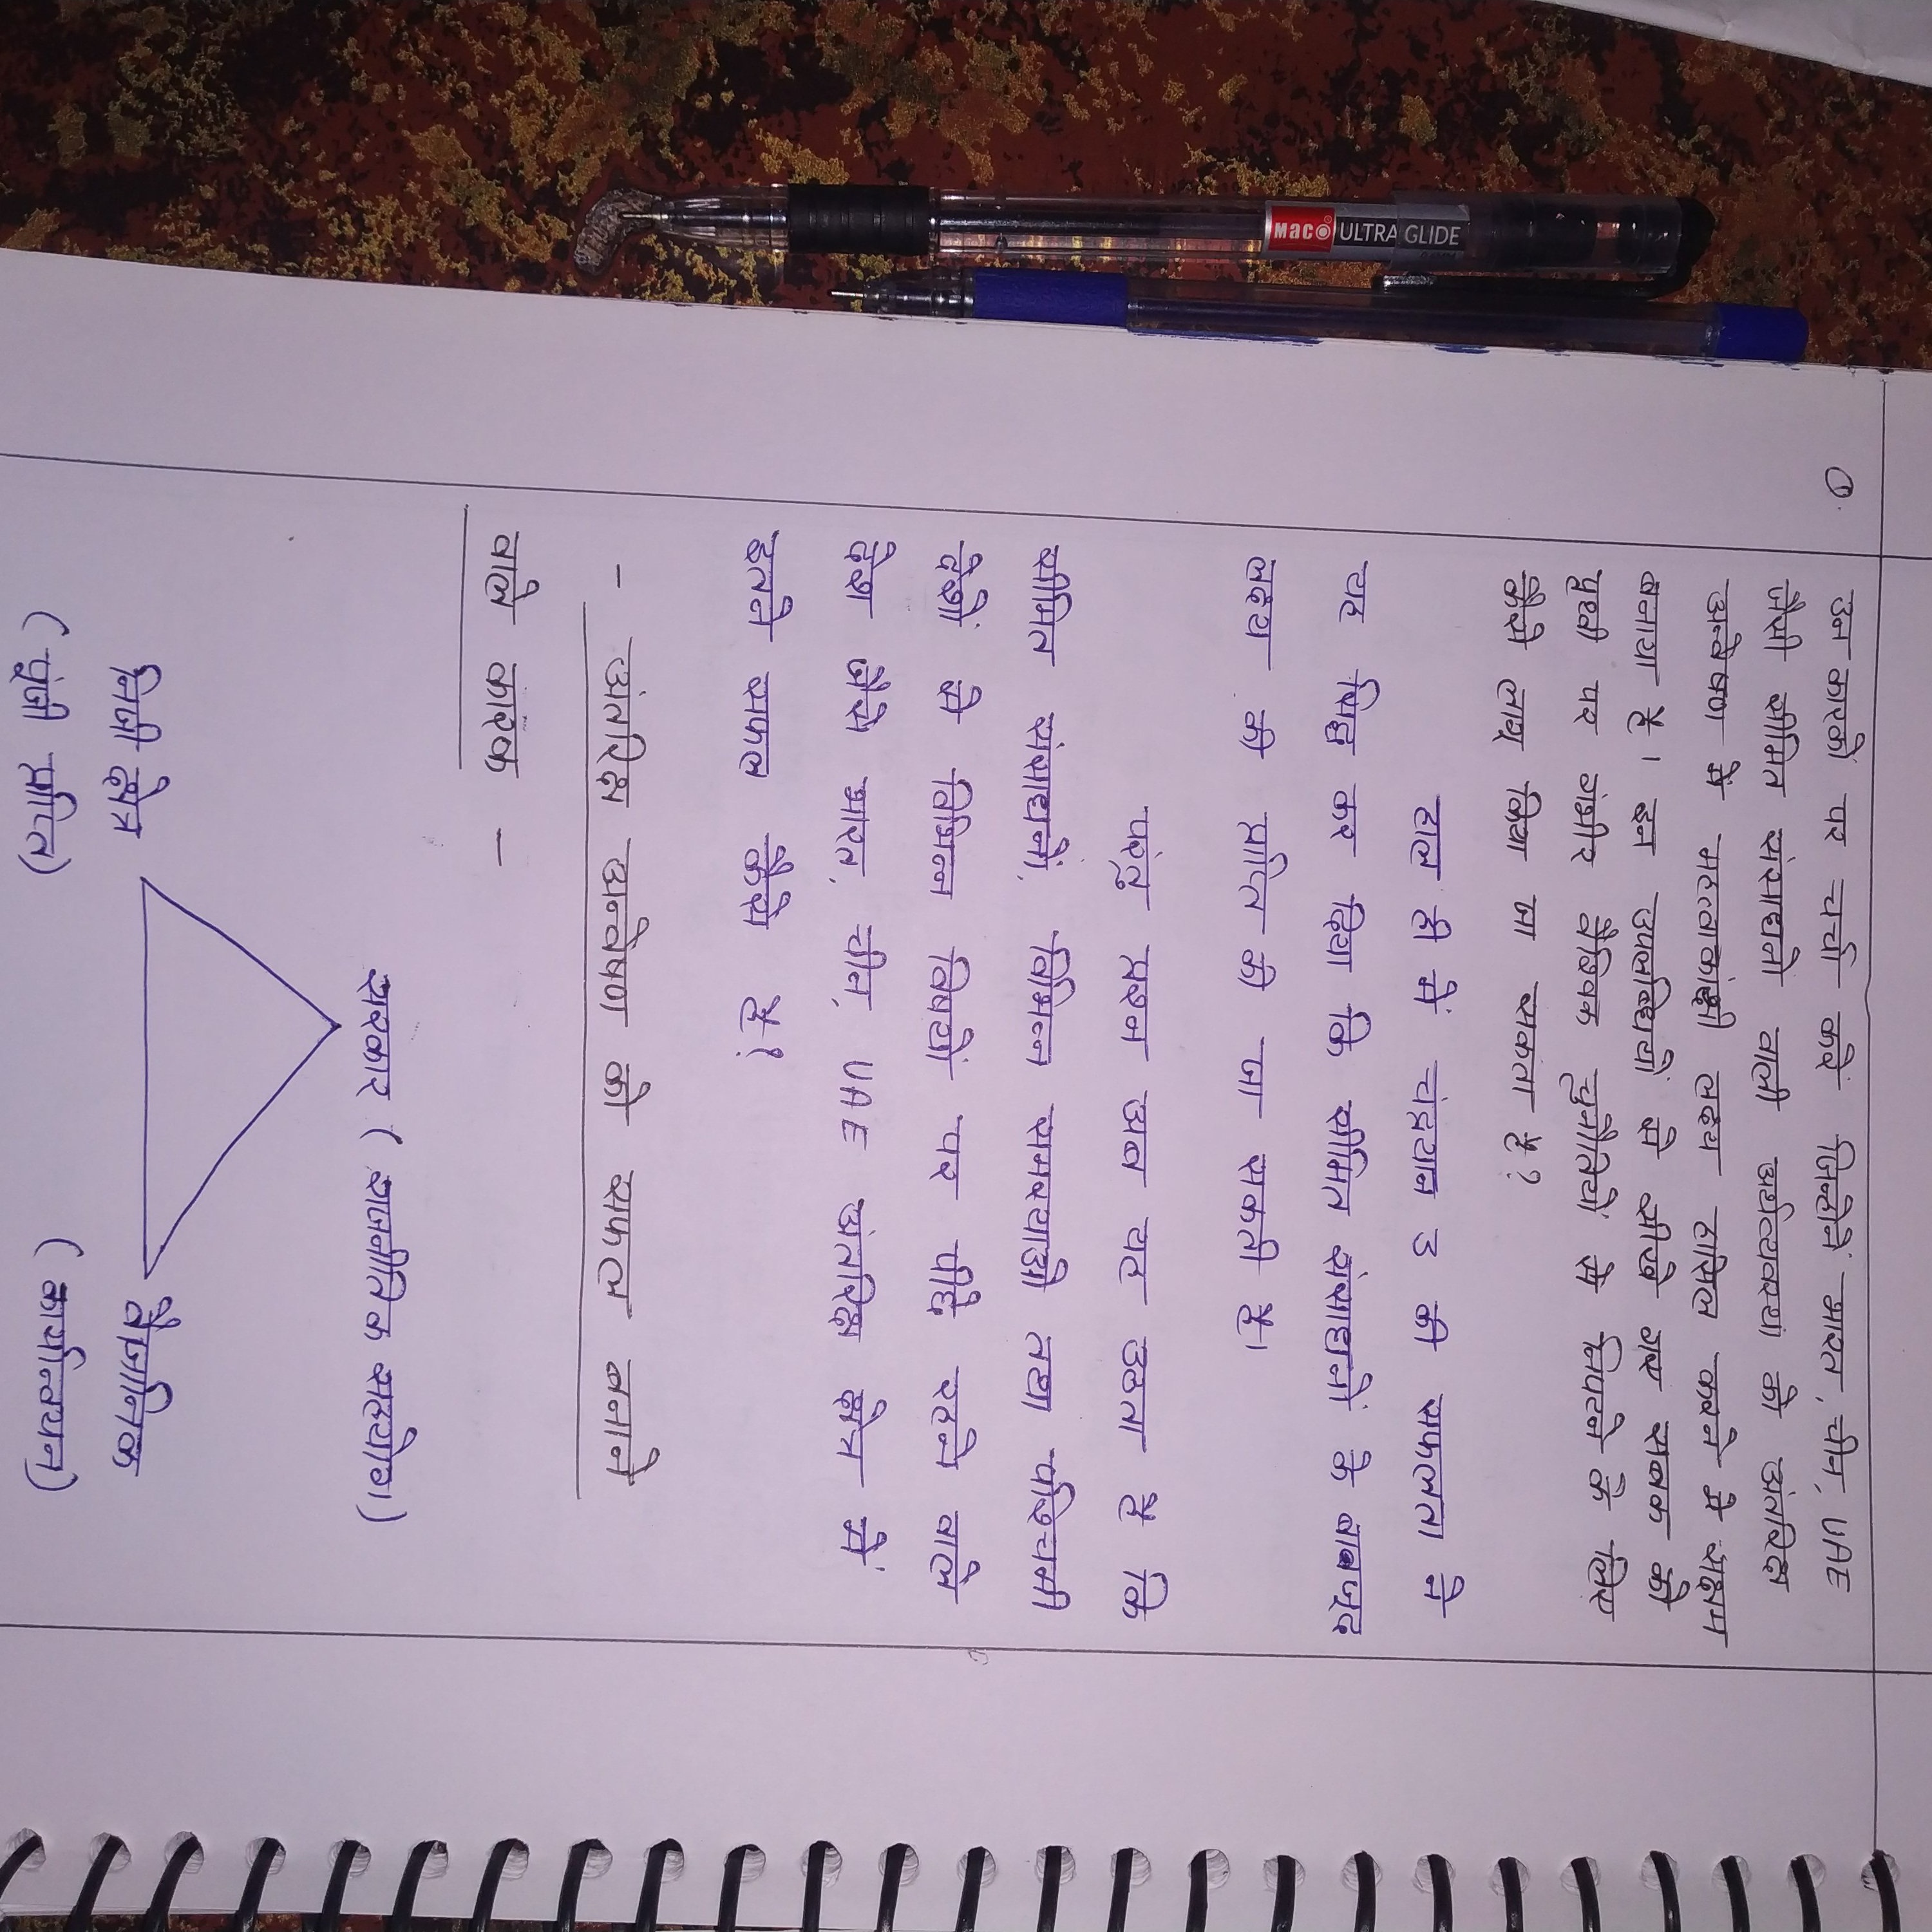 Q. उन कारकों पर चर्चा करें जिन्होंने भारत, चीन, UAE
जैसी सीमित संसाधनों वाली अर्थव्यवस्था को अंतरिक्ष
अन्वेषण में महत्वाकांक्षी लक्ष्य हासिल करने में सक्षम
बनाया है। इन उपलब्धियों से सीखे गए सबक को
पृथ्वी पर गंभीर वैश्विक चुनौतियों से निपटने के लिए
कैसे लागू किया जा सकता है?
हाल ही में चंद्रयान 3 की सफलता ने
यह सिद्ध कर दिया कि सीमित संसाधनों के बावजूद
लक्ष्य की प्राप्ति की जा सकती है।
परंतु प्रश्न अब यह उठता है कि
सीमित संसाधनों, विभिन्न समस्याओ तथा पश्चिमी
देशों से विभिन्न विषयों पर पीछे रहने वाले
देश जैसे भारत, चीन, UAE अंतरिक्ष क्षेत्र में
इतने सफल कैसे है?
- अंतरिक्ष अन्वेषण को सफल बनाने
वाले कारक -
सरकार (राजनीतिक सहयोग)
निजी क्षेत्र वैज्ञानिक
(पूंजी प्राप्ति) (कार्यान्वयन)
Maco ULTRA GLIDE